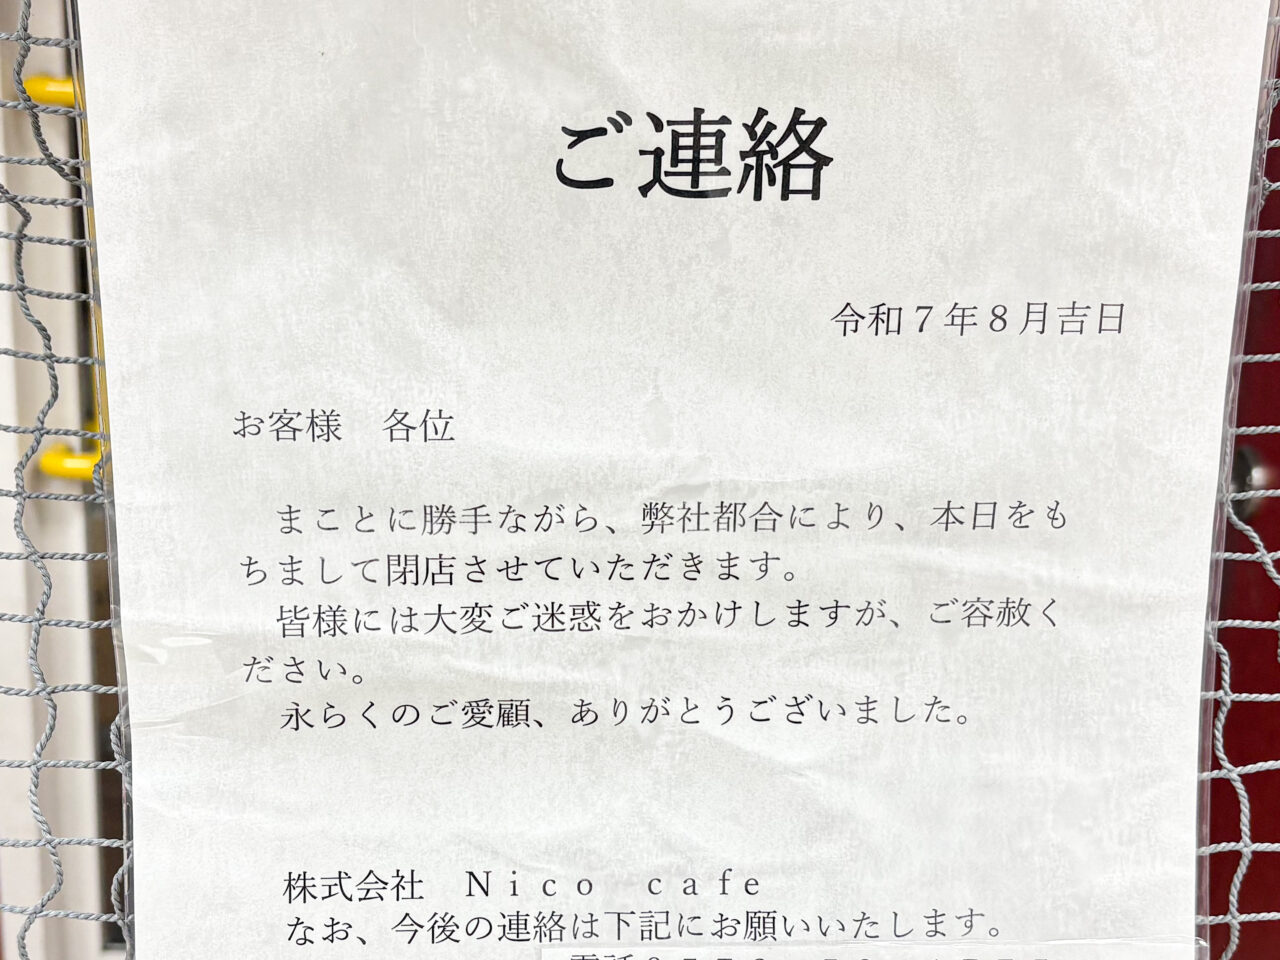 ご連絡
令和７年８月吉日
お客様　各位
まことに勝手ながら、弊社都合により、本日をも
ちまして閉店させていただきます。
皆様には大変ご迷惑をおかけしますが、ご容赦く
ださい。
永らくのご愛顧、ありがとうございました。
株式会社　Ｎｉｃｏ　ｃａｆｅ
なお、今後の連絡は下記にお願いいたします。